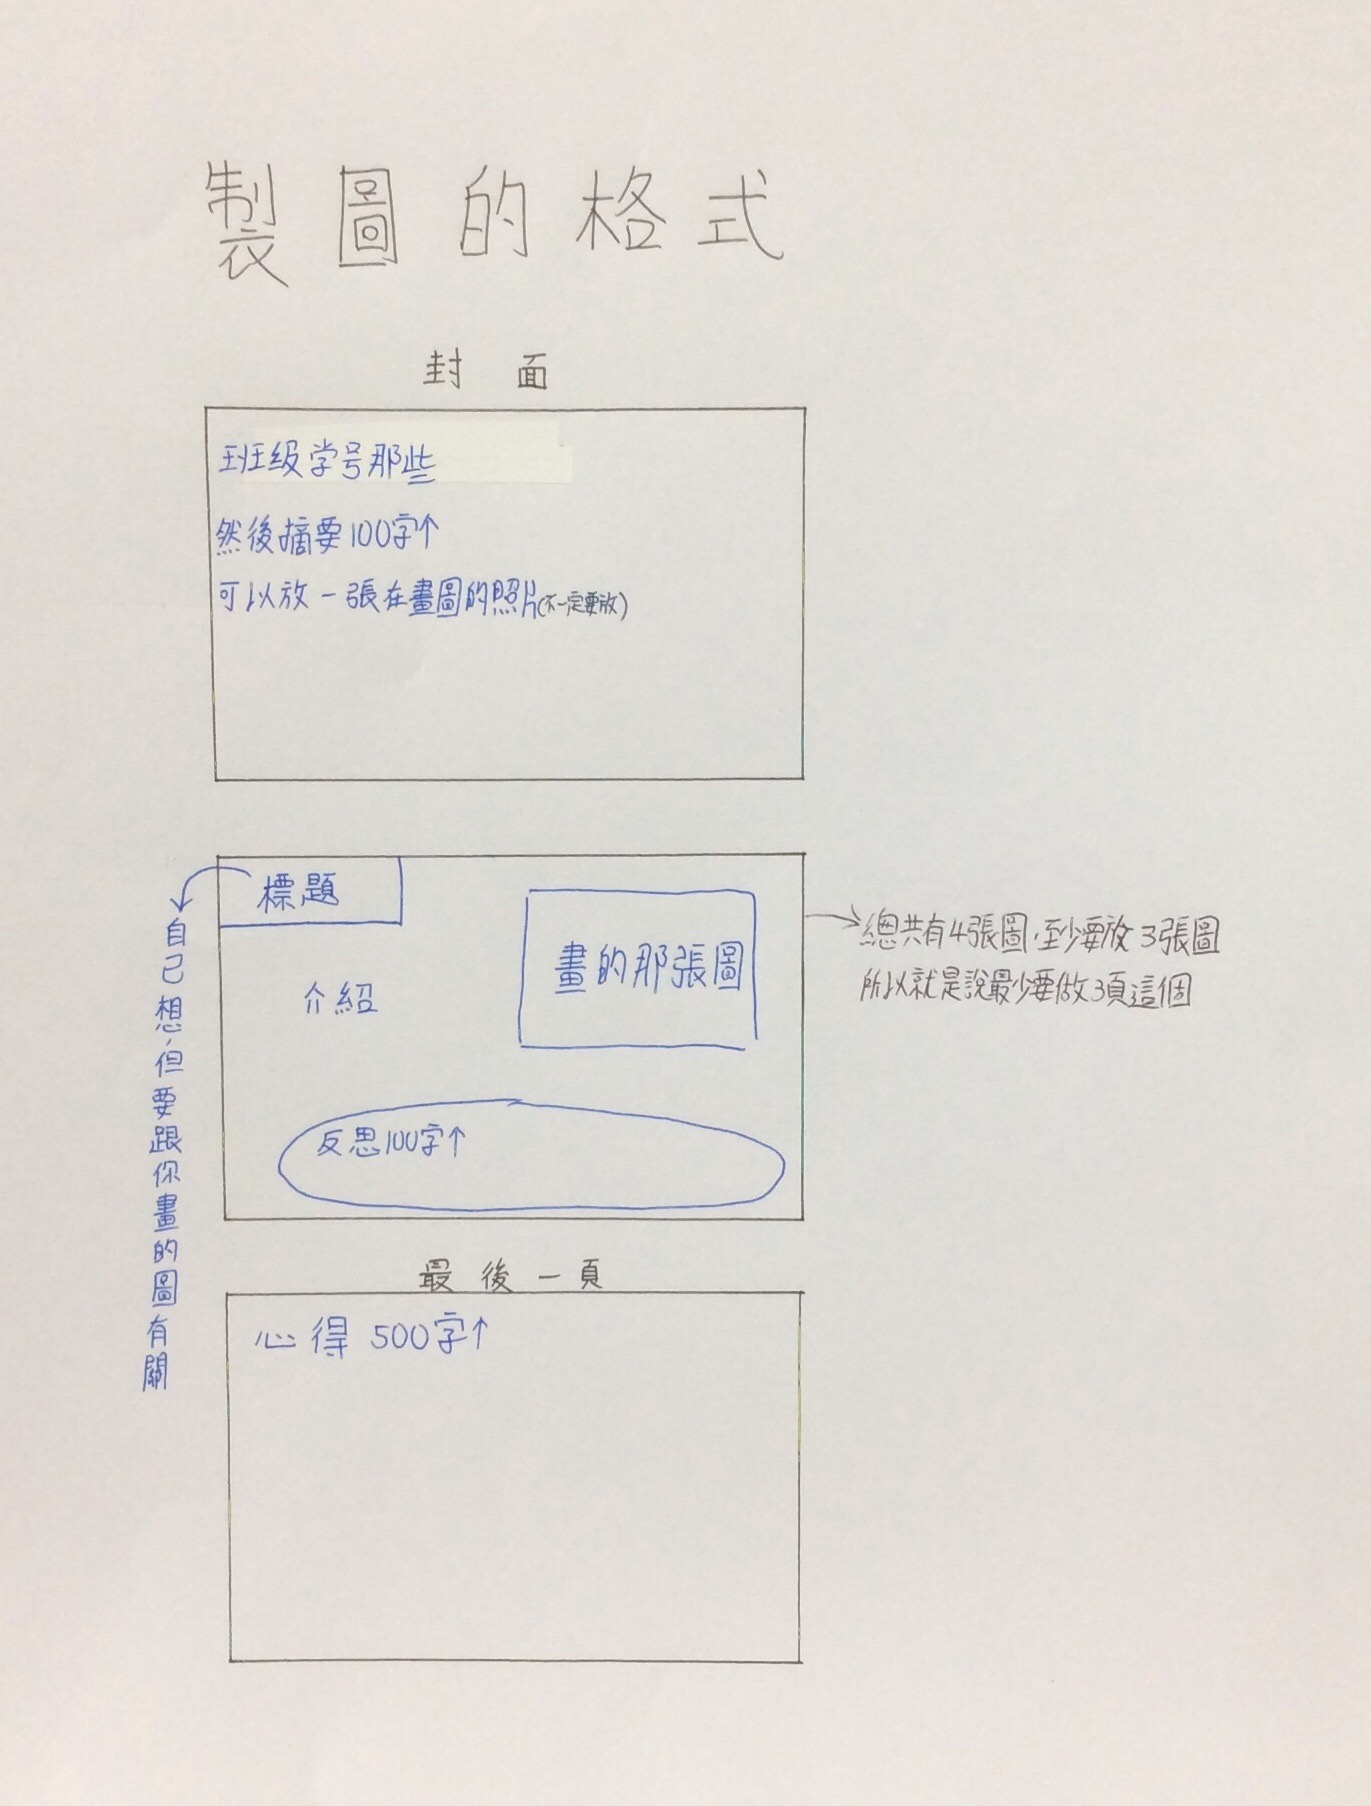 製圖的格式
封面
班級学号那些
然後摘要100字↑
可以放一張在畫圖的照片(不一定要放)
標題
自己想,但要跟你畫的圖有關
介紹
畫的那張圖
總共有4張圖,至少要放3張圖
所以就是說最少要做3頁這個
反思100字↑
最後一頁
心得 500字↑